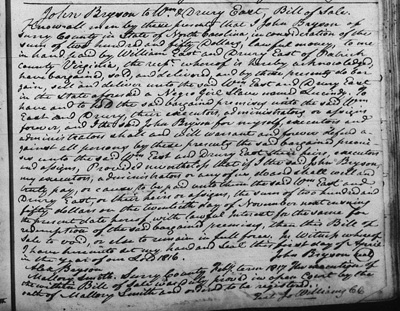 John Bryson to Wm & Drury East Bill of Sale
Know all men by these presents that I John Bryson of
Surry County in State of North Carolina, in consideration of the
sum of two hundred and fifty Dollars, lawful money, to me
in hand paid by William East and Drury East of Patrick
county Virginia, the rect. whereof is hereby acknowledged,
have bargained, sold, and delivered, and by these presents do bar-
gain, sell and deliver unto the sd Wm East and Drury East
in the state aforesaid a Negro Girl Slave named To
have and to hold the said bargained premises unto the said Wm
East and Drury, their executors, administrators or assigns
forever, and I the sd John Bryson for myself, executors and
administrators shall and will warrant and forever defend a-
gainst all persons by these presents the said bargained premi-
ses unto the said Wm East and Drury East their heirs executors
and assigns, Provided nevertheless that if I the said John Bryson,
my executors, administrators or any of us do and shall well and
truly pay, or cause to be paid unto them the said Wm East and
Drury East, or their heirs or assigns, the sum of two hundred and
fifty dollars on the twentieth day of November next ensuing
the present date hereof with lawful Interest for the same for
redemption of the said bargained premises, then this Bill of
Sale to void, or else to remain in full force. In witness whereof
I have hereunto set my hand and seal this first day of April
in the year of our Lord 1816. John Bryson Seal
Alex Bryson
Mallory Smith. Surry County Feby. term 1817 The execution of
the within Bill of Sale was duly proved in open Court by the
oath of Mallory Smith and ordered to be registered.
Test Jo Williams CC